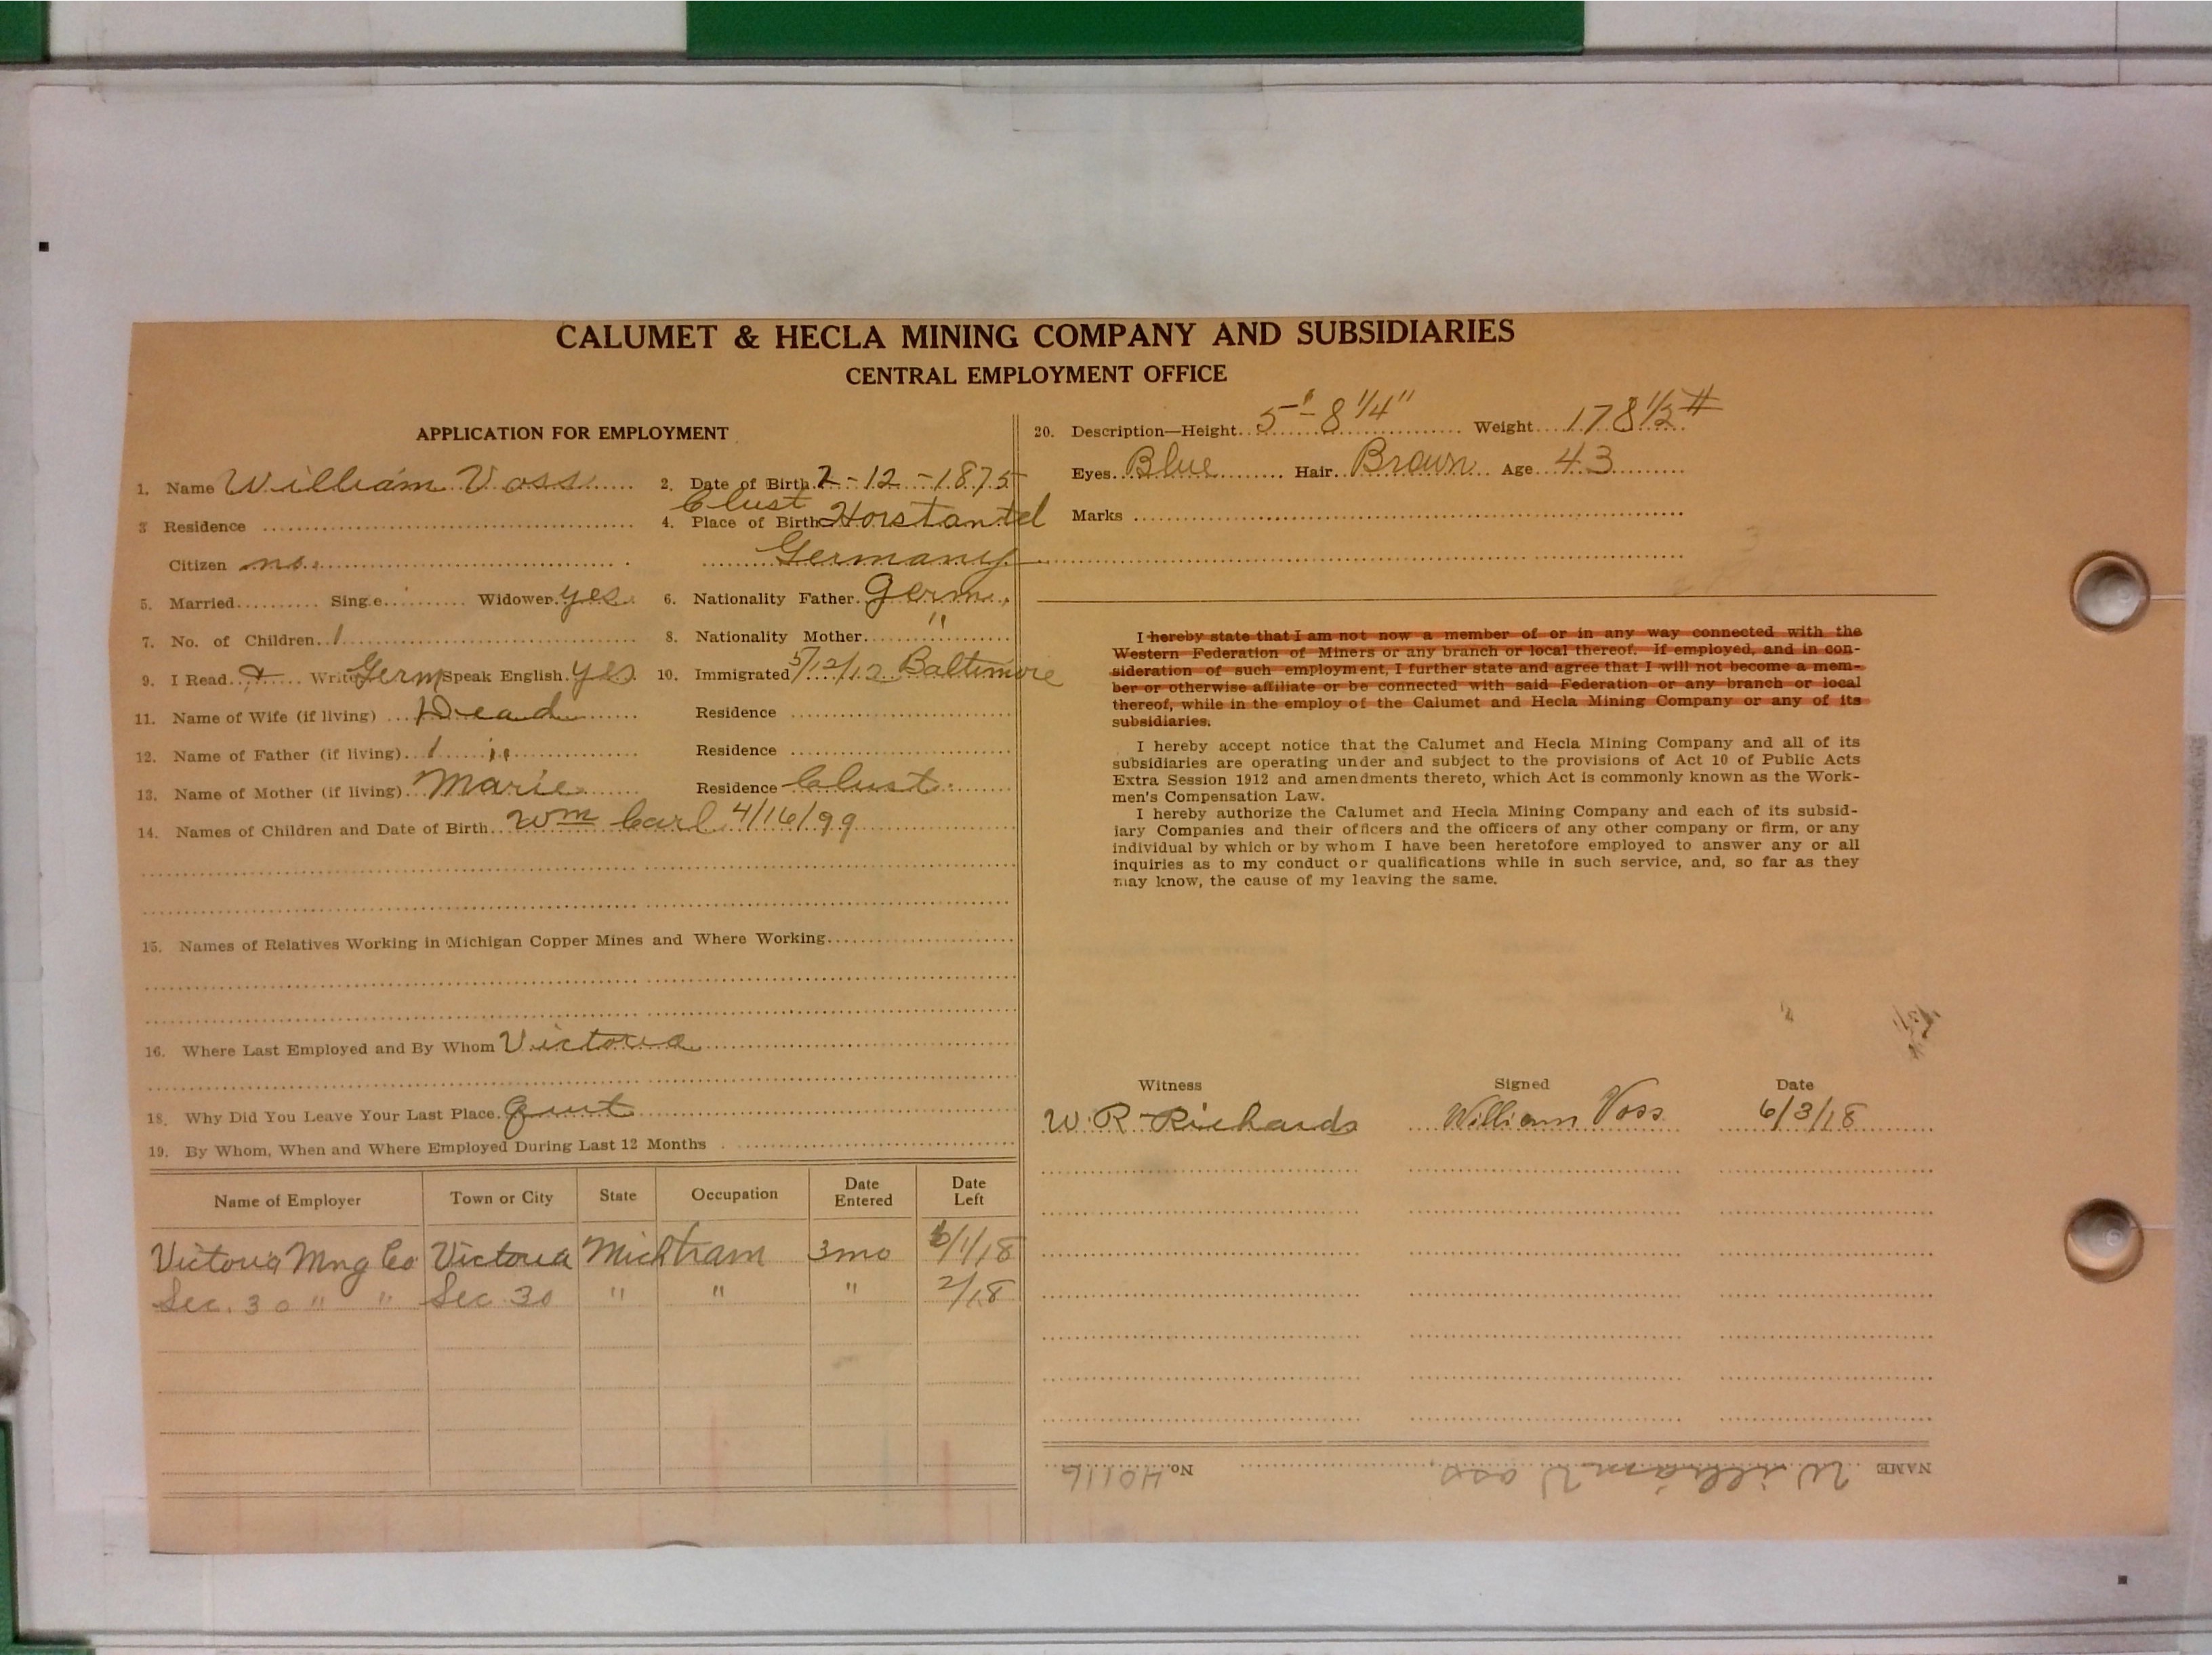 CALUMET & HECLA MINING COMPANY AND SUBSIDIARIES
CENTRAL EMPLOYMENT OFFICE
APPLICATION FOR EMPLOYMENT
1. Name William Voss 2. Date of Birth 2-12-1875
Clust
3 Residence 4. Place of Birth Horstantel
Citizen no. Germany
5. Married Single Widower yes 6. Nationality Father Germ.
7. No. of Children 1 8. Nationality Mother "
9. I Read & Write Germ Speak English yes 10. Immigrated 5/12/12 Baltimore
11. Name of Wife (if living) Dead Residence
12. Name of Father (if living) " Residence
13. Name of Mother (if living) Marie Residence Clust
14. Names of Children and Date of Birth Wm Carl 4/16/99
15. Names of Relatives Working in Michigan Copper Mines and Where Working
16. Where Last Employed and By Whom Victoria
18. Why Did You Leave Your Last Place. Quit
19. By Whom, When and Where Employed During Last 12 Months
Name of Employer Town or City State Occupation Date Entered Date Left
Victoria Mng Co Victoria Mich tram 3mo 6/1/18
Sec. 30 " " Sec 30 " " " 2/18
20. Description—Height 5'-8 1/4" Weight 178 1/2 #
Eyes Blue Hair Brown Age 43
Marks
I hereby state that I am not now a member of or in any way connected with the
Western Federation of Miners or any branch or local thereof. If employed, and in con-
sideration of such employment, I further state and agree that I will not become a mem-
ber or otherwise affiliate or be connected with said Federation or any branch or local
thereof, while in the employ of the Calumet and Hecla Mining Company or any of its
subsidiaries.
I hereby accept notice that the Calumet and Hecla Mining Company and all of its
subsidiaries are operating under and subject to the provisions of Act 10 of Public Acts
Extra Session 1912 and amendments thereto, which Act is commonly known as the Work-
men's Compensation Law.
I hereby authorize the Calumet and Hecla Mining Company and each of its subsid-
iary Companies and their officers and the officers of any other company or firm, or any
individual by which or by whom I have been heretofore employed to answer any or all
inquiries as to my conduct or qualifications while in such service, and, so far as they
may know, the cause of my leaving the same.
Witness Signed Date
W. R. Richards William Voss 6/3/18
NAME William Voss No. 40116